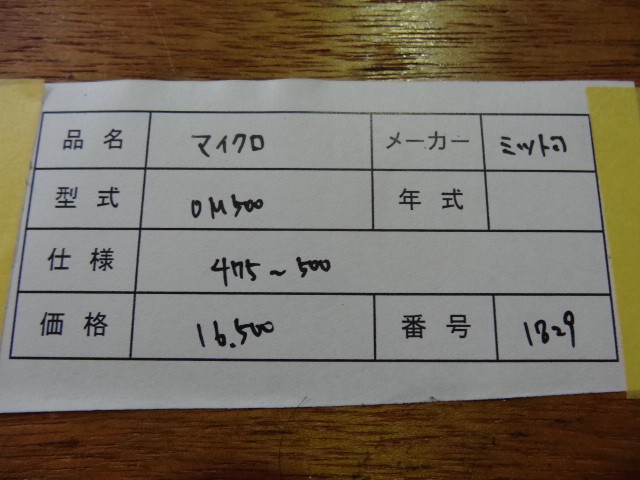 品名 マイクロ メーカー ミツトヨ
型式 OM500 年式
仕様 475~500
価格 16.500 番号 1329